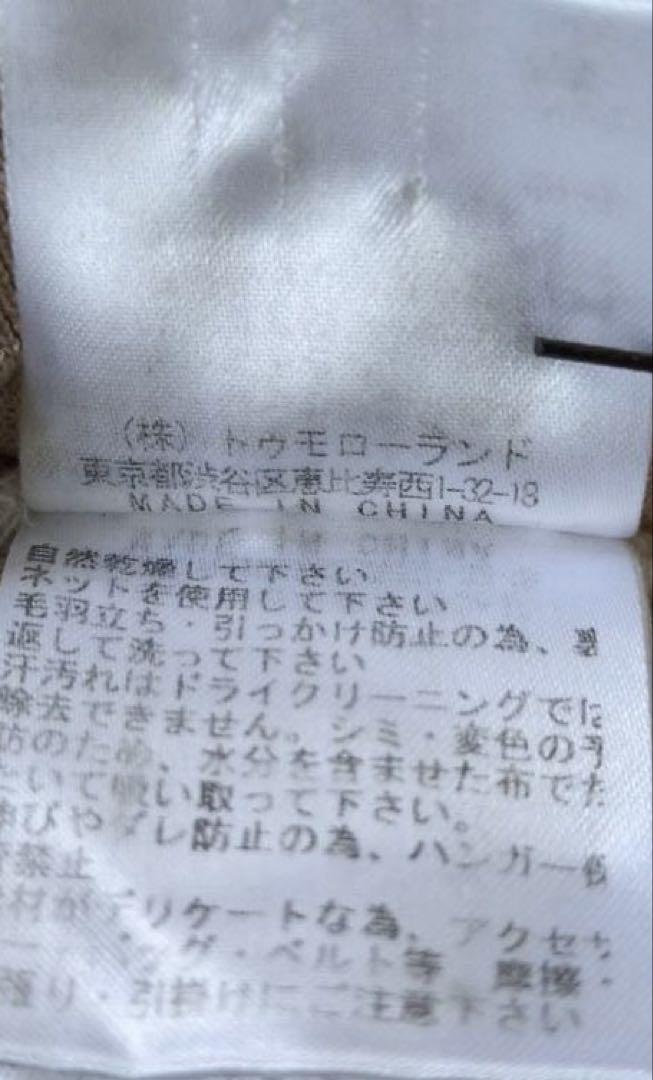 （株）トゥモローランド
東京都渋谷区恵比寿西1-32-18
MADE IN CHINA
自然乾燥して下さい
ネットを使用して下さい
毛羽立ち・引っかけ防止の為、裏
返して洗って下さい
汗汚れはドライクリーニングでは
除去できません。シミ・変色の予
防のため、水分を含ませた布でた
いて吸い取って下さい。
伸びやダレ防止の為、ハンガー
禁止
素材がデリケートな為、アクセサ
グ・ベルト等 摩擦・
張り・引掛けにご注意下さい